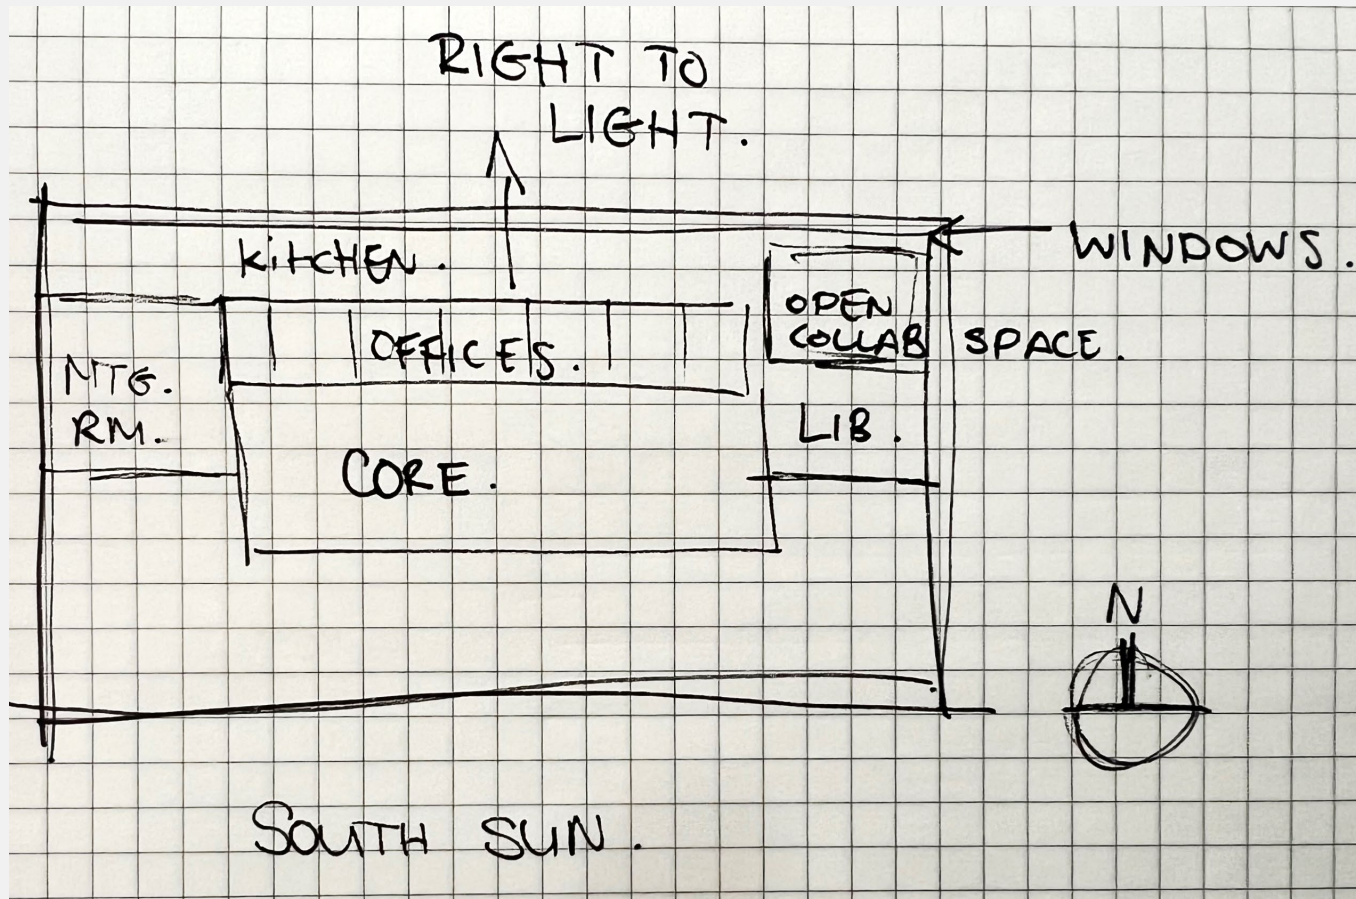 RIGHT TO
LIGHT.
KITCHEN.
WINDOWS.
OPEN
COLLAB SPACE.
OFFICES.
MTG.
RM.
LIB.
CORE.
N
SOUTH SUN.